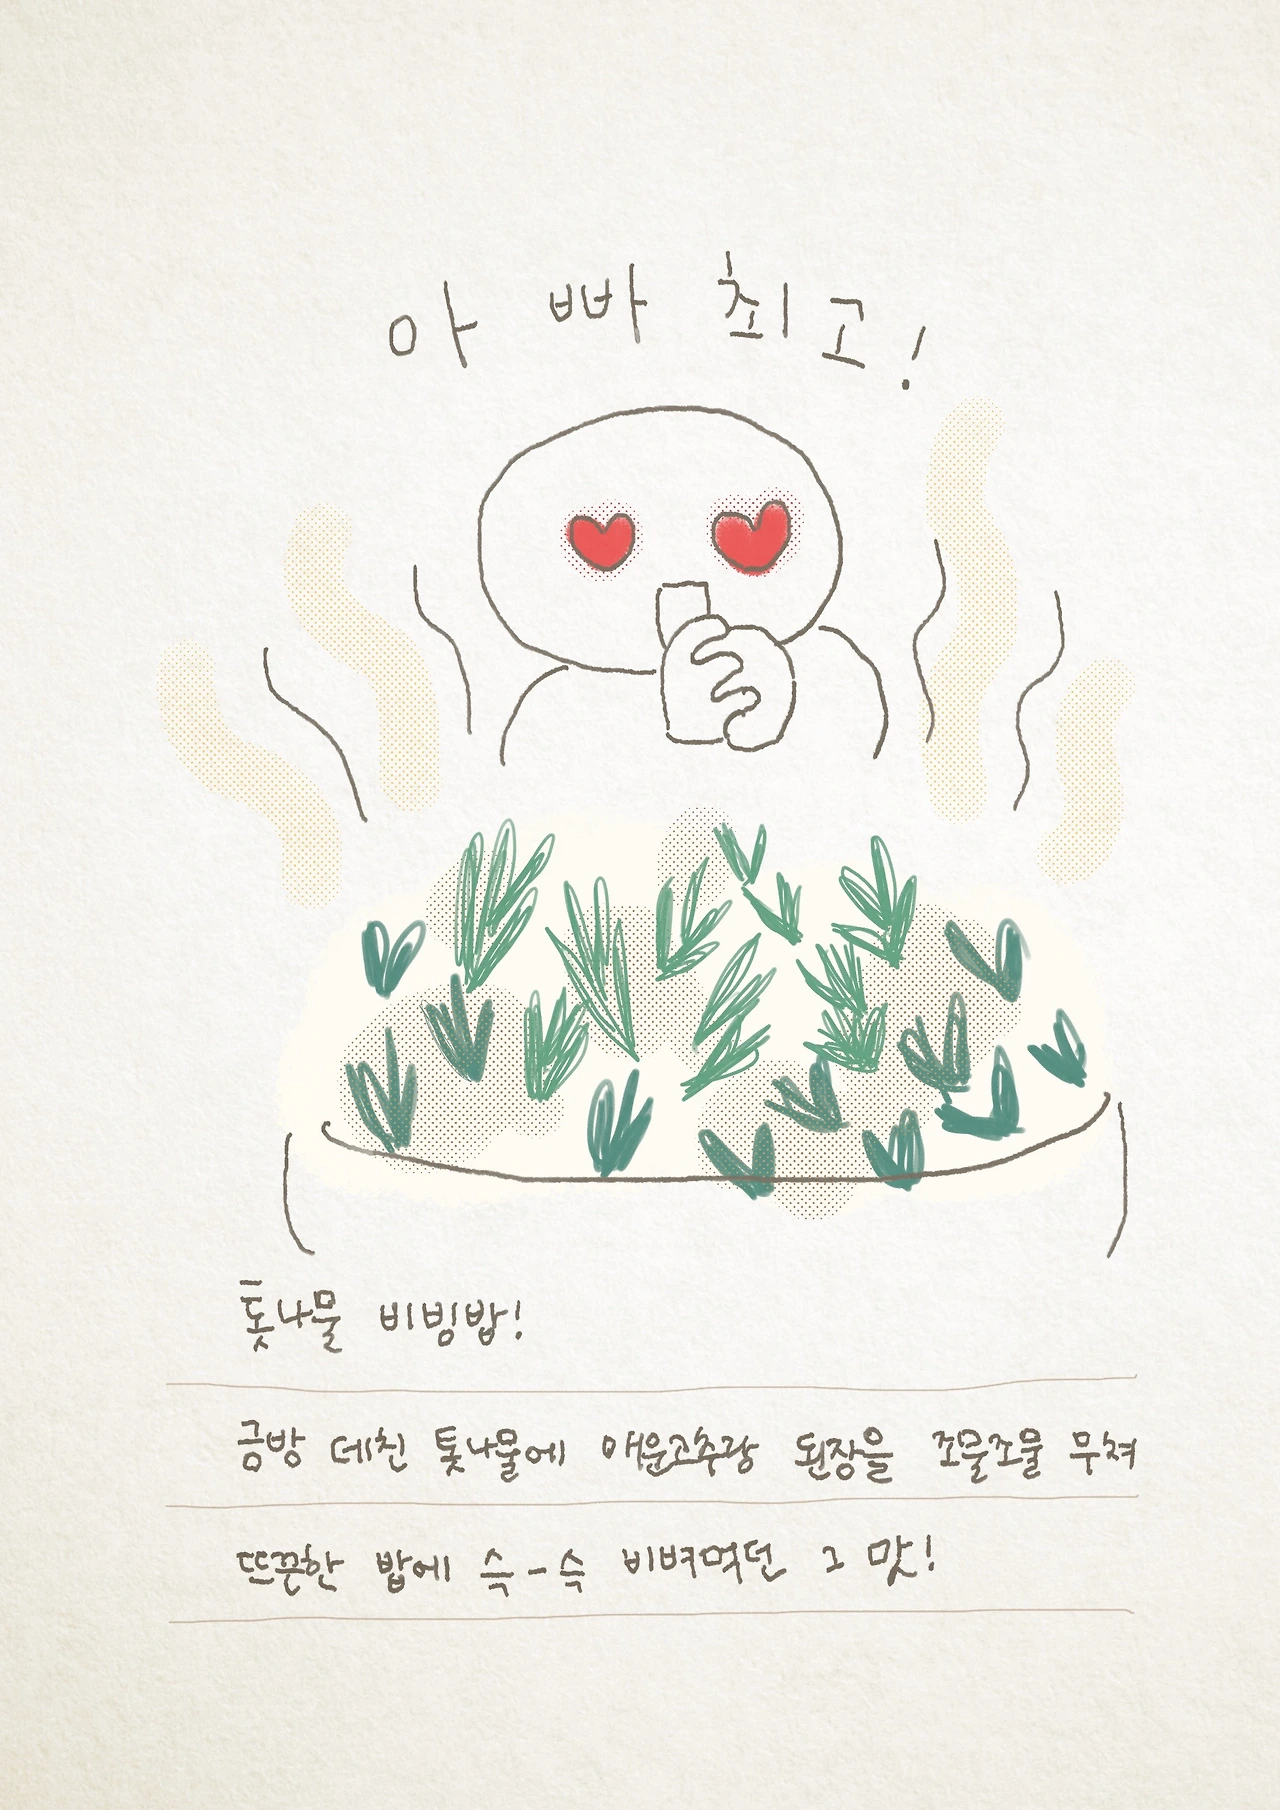 아빠 최고!
톳나물 비빙밥!
금방 데친 톳나물에 매운고추랑 된장을 조물조물 무쳐
뜨끈한 밥에 슥-슥 비벼먹던 그 맛!